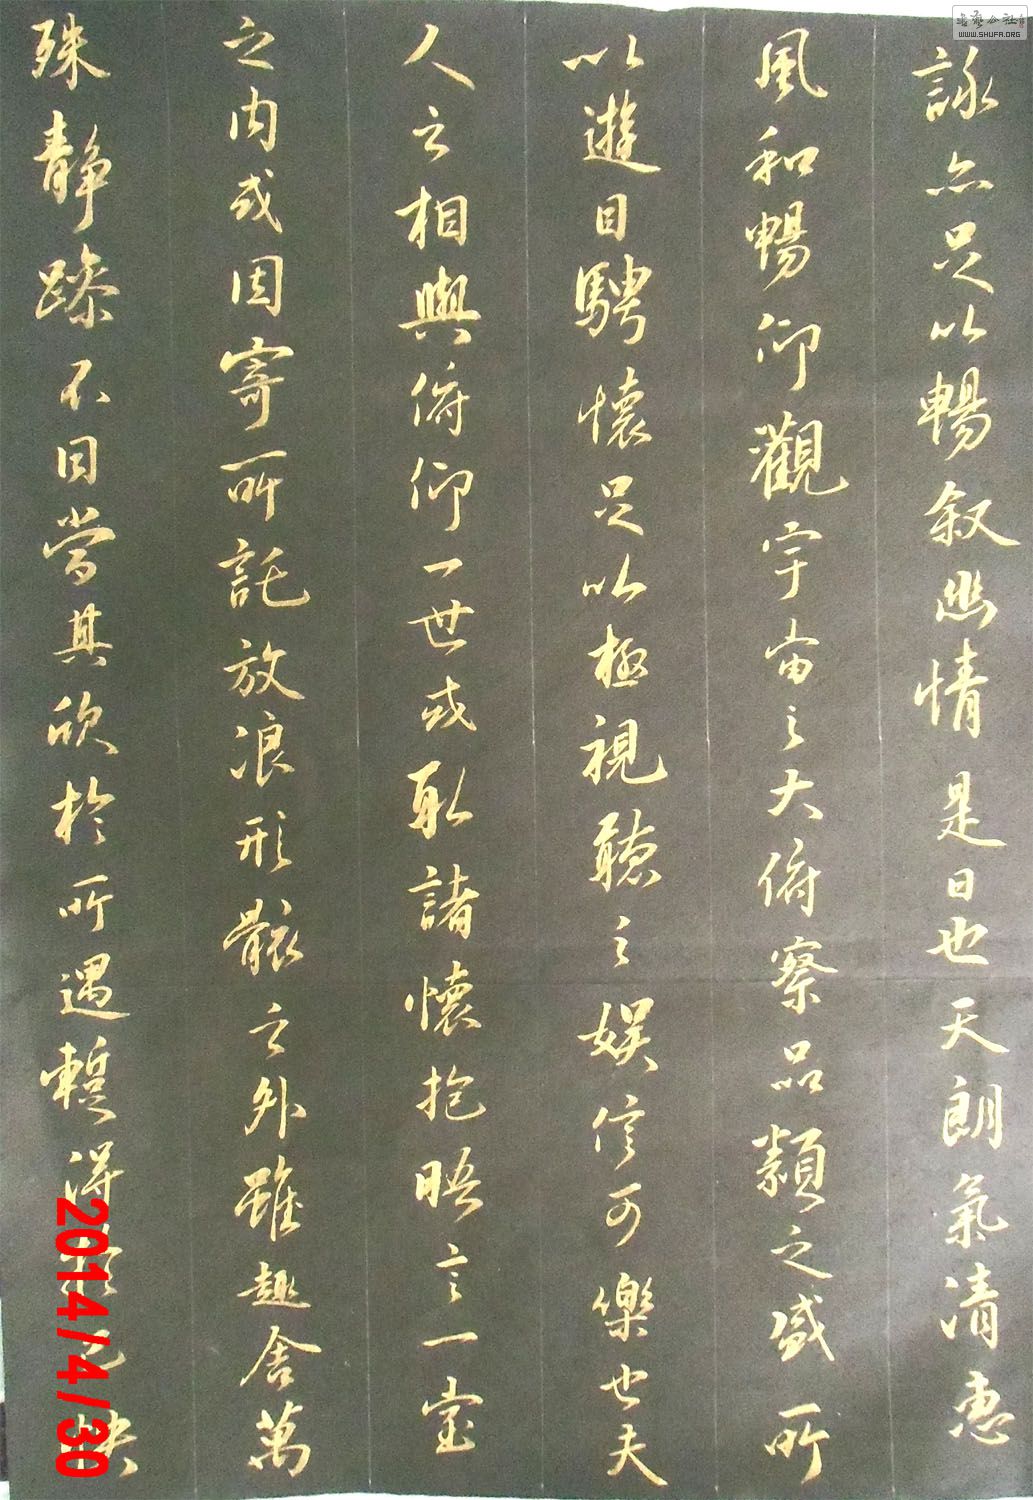 詠亦足以暢叙幽情是日也天朗氣清惠
風和暢仰觀宇宙之大俯察品類之盛所
以遊目騁懷足以極視聽之娛信可樂也夫
人之相與俯仰一世或取諸懷抱晤言一室
之内或因寄所託放浪形骸之外雖趣舍萬
殊静躁不同當其欣於所遇暫得於己快
2014/4/30
WWW.SHUFA.ORG